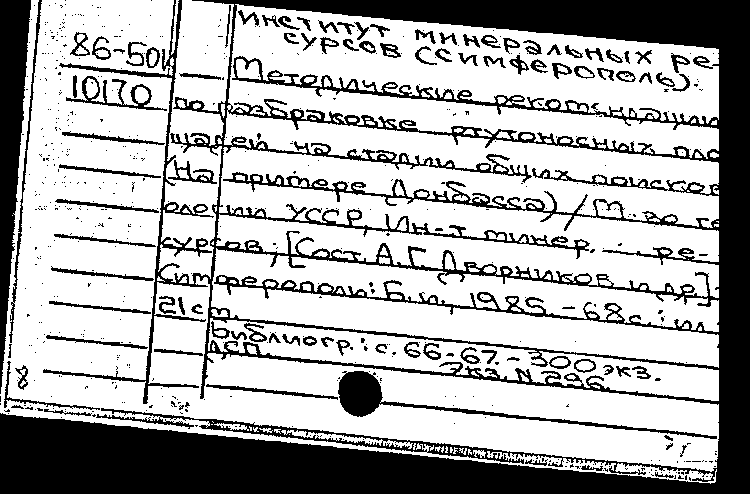 Институт минеральных ре-
сурсов (Симферополь).
86-50к
10170
Методические рекомендации
по разбраковке ртутоносных пло
щадей на стадии общих поисков
(На примере Донбасса) / М-во ге
ологии УССР, Ин-т минер. ре-
сурсов; [Сост. А.Г. Дворников и др.]
Симферополь: Б.и., 1985. - 68 с.: ил
21 см.
Библиогр.: с. 66-67. - 300 экз.
ДСП. Экз. N 296